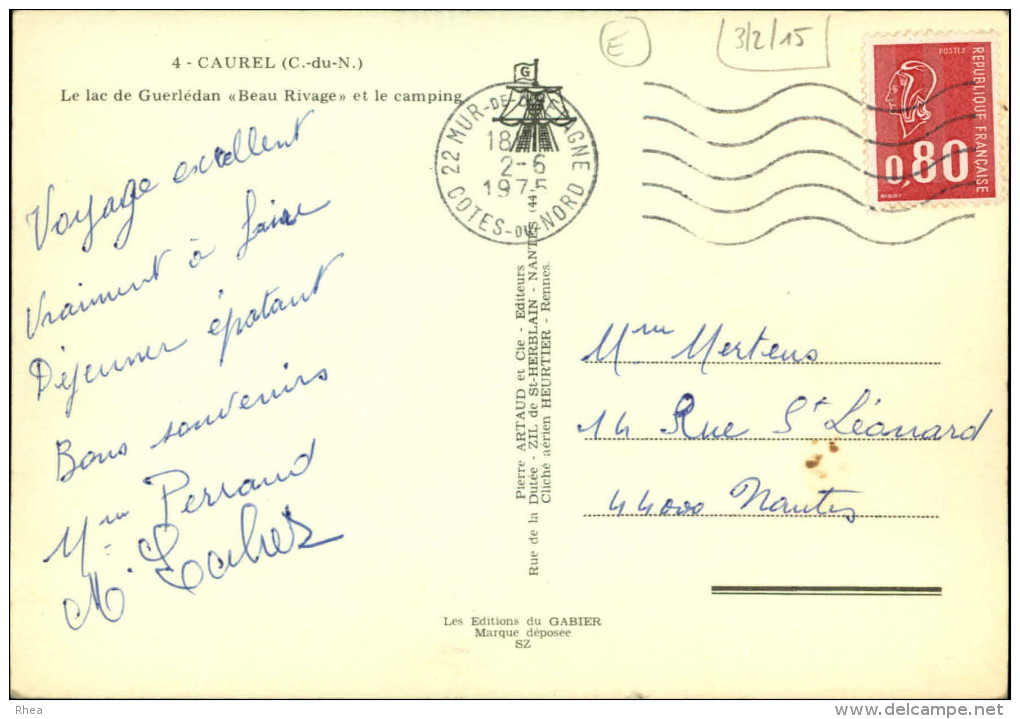 E
3/2/15
4 - CAUREL (C.-du-N.)
Le lac de Guerlédan «Beau Rivage» et le camping
Voyage excellent
Vraiment à faire
Déjeuner épatant
Bons souvenirs
Mme Perraud
M.
G
22 MUR-DE-BRETAGNE
18
2-6
1975
COTES-DU-NORD
POSTES
REPUBLIQUE FRANÇAISE
0,80
Pierre ARTAUD et Cie - Editeurs
Rue de la Dutée - ZIL de St-HERBLAIN - NANTES (44)
Cliché aérien HEURTIER - Rennes.
Mme Mertens
14 Rue St Léonard
44000 Nantes
Les Editions du GABIER
Marque déposée
SZ
Rhea
delcampe.net